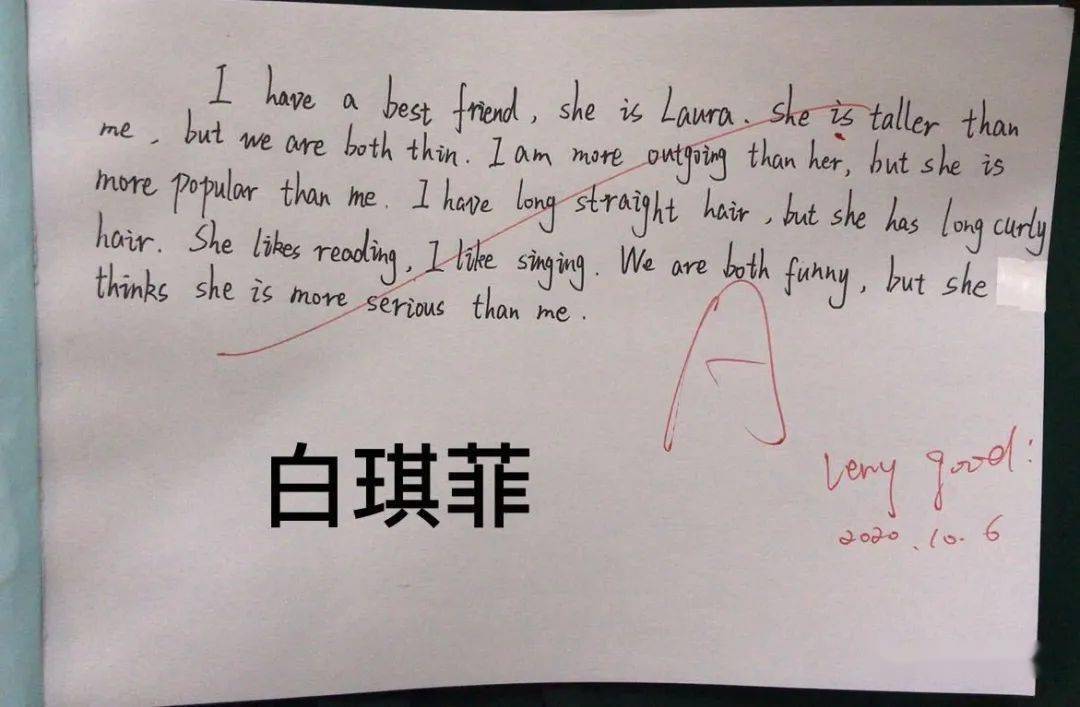 I have a best friend, she is Laura. she is taller than
me, but we are both thin. I am more outgoing than her, but she is
more popular than me. I have long straight hair, but she has long curly
hair. She likes reading, I like singing. We are both funny, but she
thinks she is more serious than me.
A
白琪菲
very good!
2020.10.6